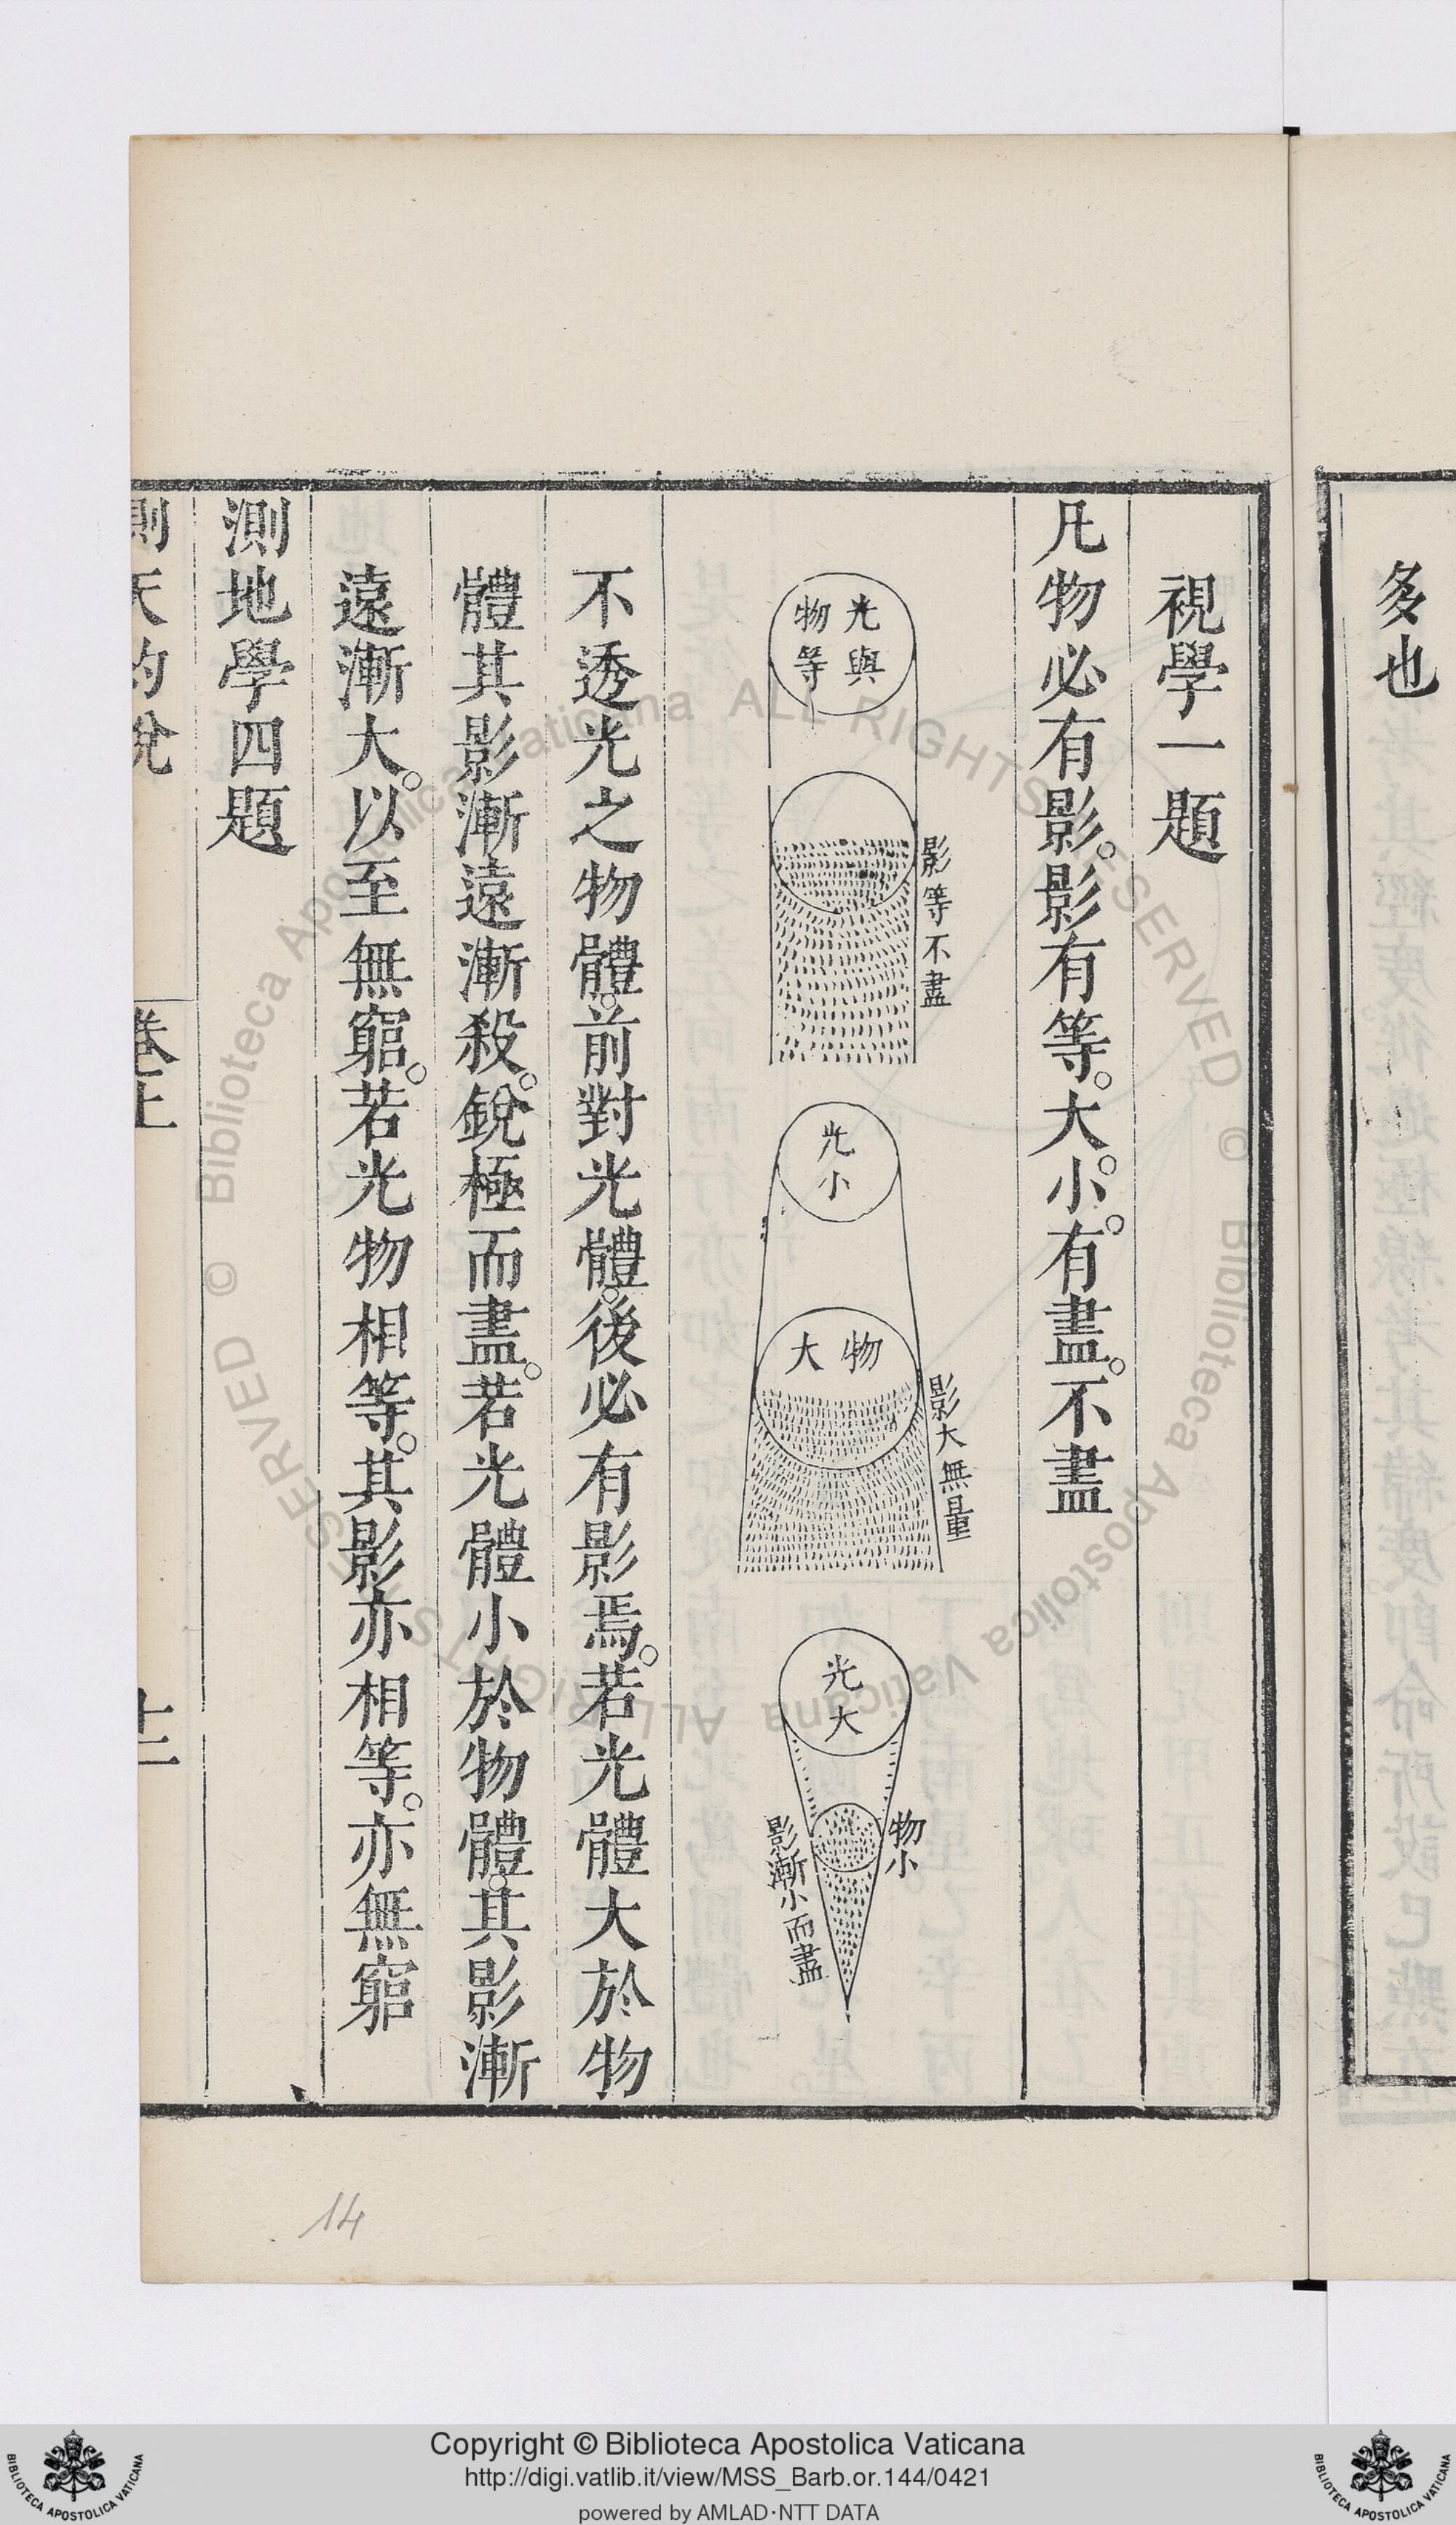 多也
視學一題
凡物必有影。影有等。大。小。有盡。不盡
光與
物等
影等不盡
光小
物大
影大無量
光大
物小
影漸小而盡
不透光之物體。前對光體。後必有影焉。若光體大於物
體其影漸遠漸殺。銳極而盡。若光體小於物體。其影漸
遠漸大。以至無窮。若光物相等。其影亦相等。亦無窮
測地學四題
測天約說
卷上
十二
14
© Biblioteca Apostolica Vaticana ALL RIGHTS RESERVED
© Biblioteca Apostolica Vaticana ALL RIGHTS RESERVED
Copyright © Biblioteca Apostolica Vaticana
http://digi.vatlib.it/view/MSS_Barb.or.144/0421
powered by AMLAD·NTT DATA
BIBLIOTECA APOSTOLICA VATICANA
BIBLIOTECA APOSTOLICA VATICANA